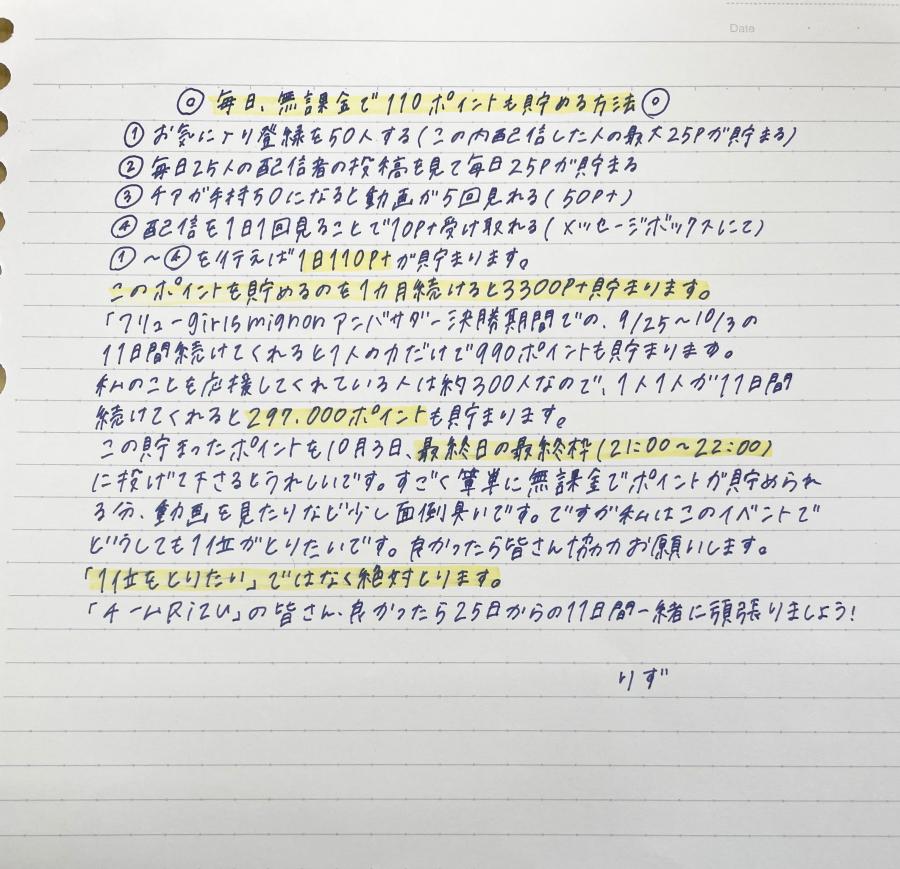 Date
◎ 毎日、無課金で110ポイントも貯める方法 ◎
① お気に入り登録を50人する(この内配信した人の最大25Pが貯まる)
② 毎日25人の配信者の投稿を見て毎日25Pが貯まる
③ チアが手持ち0になると動画が5回見れる(50Pt)
④ 配信を1日1回見ることで10Pt受け取れる(メッセージボックスにて)
①〜④を行えば1日110Ptが貯まります。
このポイントを貯めるのを1カ月続けると3300Pt貯まります。
「フリューgirlsmignonアンバサダー決勝期間での、9/25〜10/3の
11日間続けてくれると1人の力だけで990ポイントも貯まります。
私のことを応援してくれている人は約300人なので、1人1人が11日間
続けてくれると297.000ポイントも貯まります。
この貯まったポイントを10月3日、最終日の最終枠(21:00〜22:00)
に投げて下さるとうれしいです。すごく簡単に無課金でポイントが貯められ
る分、動画を見たりなど少し面倒臭いです。ですが私はこのイベントで
どうしても1位がとりたいです。良かったら皆さん協力お願いします。
「1位をとりたい」ではなく絶対とります。
「チームRizu」の皆さん、良かったら25日からの11日間一緒に頑張りましょう!
りず